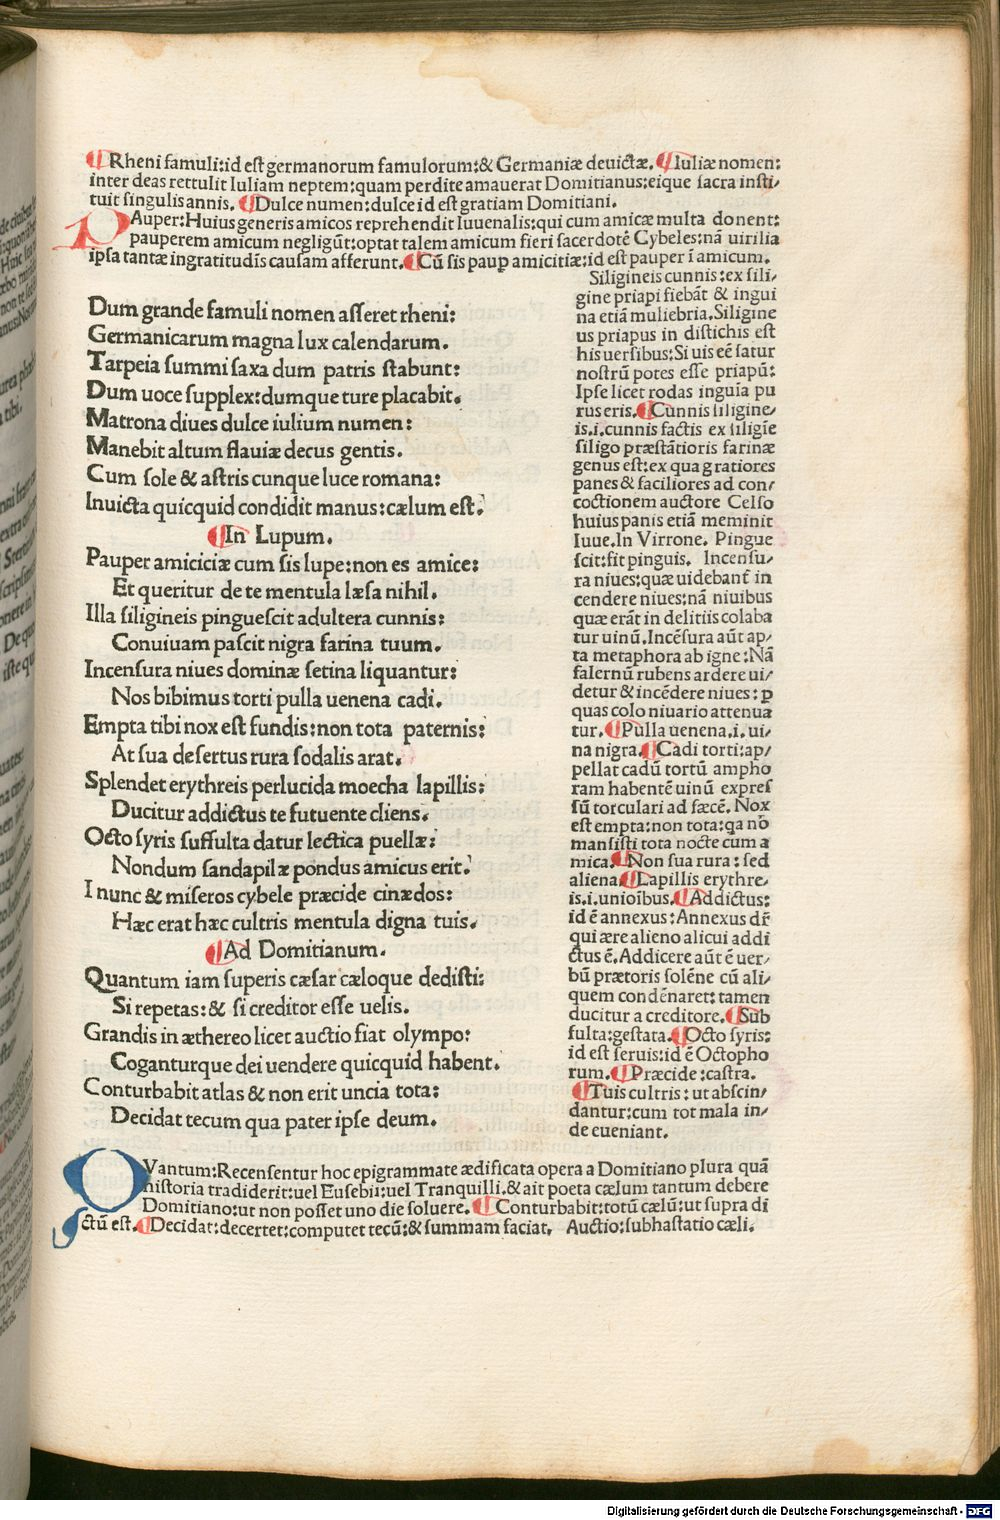 ¶Rheni famuli:id est germanorum famulorum:& Germaniæ deuictæ. ¶Iuliæ nomen:
inter deas rettulit Iuliam neptem:quam perdite amauerat Domitianus:eique sacra insti/
tuit singulis annis. ¶Dulce numen:dulce id est gratiam Domitiani.
PAuper:Huius generis amicos reprehendit Iuuenalis:qui cum amicæ multa donent:
pauperem amicum negligūt:optat talem amicum fieri sacerdotē Cybeles:nā uirilia
ipsa tantæ ingratitudīs causam afferunt. ¶Cū sis paup amicitiæ:id est pauper ī amicum.
Dum grande famuli nomen asseret rheni:
Germanicarum magna lux calendarum.
Tarpeia summi saxa dum patris stabunt:
Dum uoce supplex:dumque ture placabit.
Matrona diues dulce iulium numen:
Manebit altum flauiæ decus gentis.
Cum sole & astris cunque luce romana:
Inuicta quicquid condidit manus:cælum est.
¶In Lupum.
Pauper amiciciæ cum sis lupe:non es amice:
Et queritur de te mentula læsa nihil.
Illa siligineis pinguescit adultera cunnis:
Conuiuam pascit nigra farina tuum.
Incensura niues dominæ setina liquantur:
Nos bibimus torti pulla uenena cadi.
Empta tibi nox est fundis:non tota paternis:
At sua desertus rura sodalis arat.
Splendet erythreis perlucida moecha lapillis:
Ducitur addictus te futuente cliens.
Octo syris suffulta datur lectica puellæ:
Nondum sandapilæ pondus amicus erit.
I nunc & miseros cybele præcide cinædos:
Hæc erat hæc cultris mentula digna tuis.
¶Ad Domitianum.
Quantum iam superis cæsar cæloque dedisti:
Si repetas:& si creditor esse uelis.
Grandis in æthereo licet auctio fiat olympo:
Coganturque dei uendere quicquid habent.
Conturbabit atlas & non erit uncia tota:
Decidat tecum qua pater ipse deum.
Siligineis cunnis:ex sili/
gine priapi fiebāt & ingui
na etiā muliebria.Siligine
us priapus in distichis est
his uersibus:Si uis eē satur
nostrū potes esse priapū:
Ipse licet rodas inguia pu
rus eris. ¶Cunnis siligine/
is.i.cunnis factis ex siligīe
siligo præstātioris farinæ
genus est:ex qua gratiores
panes & faciliores ad con/
coctionem auctore Celso
huius panis etiā meminit
Iuue.In Virrone. Pingue
scit:fit pinguis. Incensu/
ra niues:quæ uidebant̄ in
cendere niues:nā niuibus
quæ erāt in delitiis colaba
tur uinū.Incēsura aūt ap/
ta metaphora ab igne:Nā
falernū rubens ardere ui/
detur & incēdere niues:ꝑ
quas colo niuario attenua
tur. ¶Pulla uenena.i.ui/
na nigra. ¶Cadi torti:ap/
pellat cadū tortū ampho
ram habentē uinū expres
sū torculari ad fæcē. Nox
est empta:non tota:qa nō
mansisti tota nocte cum a
mica. ¶Non sua rura:sed
aliena ¶Lapillis erythre/
is.i.unioībus. ¶Addictus:
id ē annexus:Annexus dr̄
qui ære alieno alicui addi
ctus ē.Addicere aūt ē uer/
bū prætoris solēne cū ali/
quem condēnaret:tamen
ducitur a creditore. ¶Sub
fulta:gestata. ¶Octo syris:
id est seruis:id ē Octopho
rum. ¶Præcide:castra.
¶Tuis cultris:ut abscin/
dantur:cum tot mala in/
de eueniant.
QVantum:Recensentur hoc epigrammate ædificata opera a Domitiano plura quā
historia tradiderit:uel Eusebii:uel Tranquilli.& ait poeta cælum tantum debere
Domitiano:ut non posset uno die soluere. ¶Conturbabit:totū cælū:ut supra di
ctū est. ¶Decidat:decertet:computet tecū:& summam faciat. Auctio:subhastatio cæli.
Digitalisierung gefördert durch die Deutsche Forschungsgemeinschaft - DFG